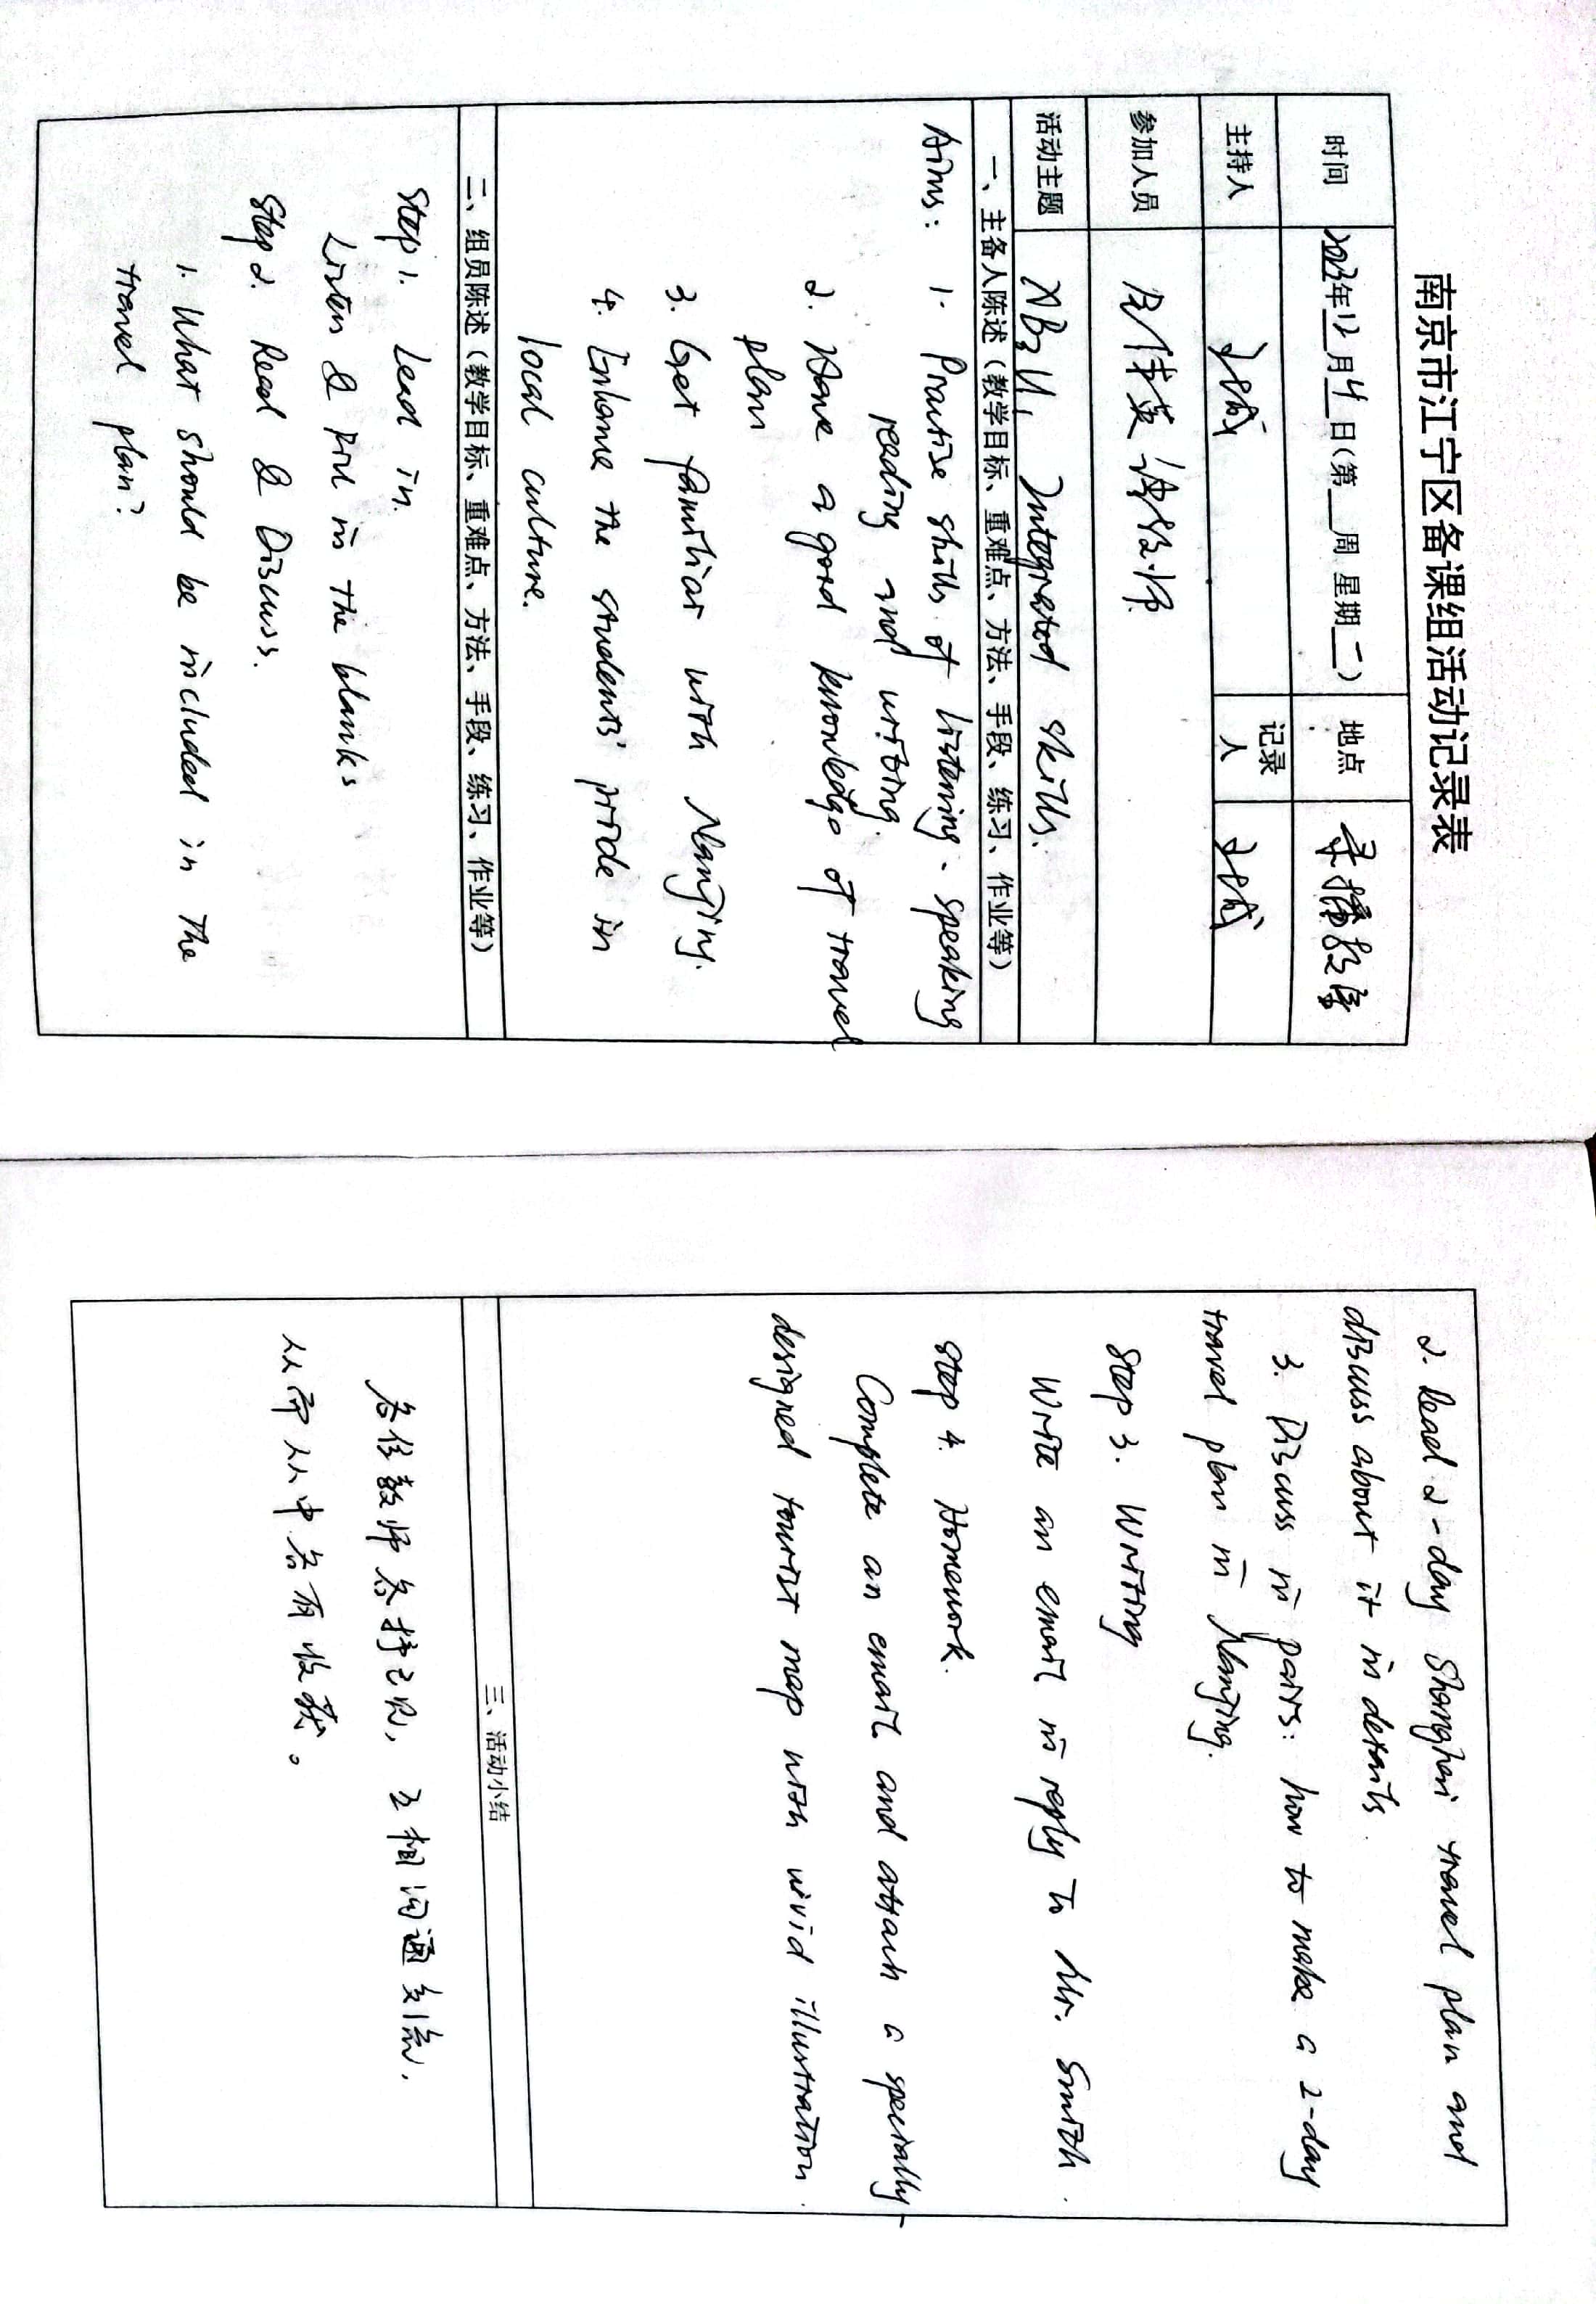 南京市江宁区备课组活动记录表
时间 2023年12月4日(第__周 星期二) 地点 录播教室
主持人 王城 记录人 王城
参加人员 全体英语教师
活动主题 XB3U1 Integrated skills.
一、主备人陈述（教学目标、重难点、方法、手段、练习、作业等）
Aims: 1. Practise skills of listening. speaking
reading and writing.
2. Have a good knowledge of travel
plan
3. Get familiar with Nanjing.
4. Enhance the students' pride in
local culture.
二、组员陈述（教学目标、重难点、方法、手段、练习、作业等）
Step 1. Lead in.
Listen & Fill in the blanks
Step 2. Read & Discuss.
1. What should be included in the
travel plan?
2. Read 2-day Shanghai travel plan and
discuss about it in details.
3. Discuss in pairs: how to make a 2-day
travel plan in Nanjing.
Step 3. Writing
Write an email in reply to Mr. Smith.
Step 4. Homework.
Complete an email and attach a specially-
designed tourist map with vivid illustration.
三、活动小结
各位教师各抒己见，互相沟通交流，
从而从中各有收获。